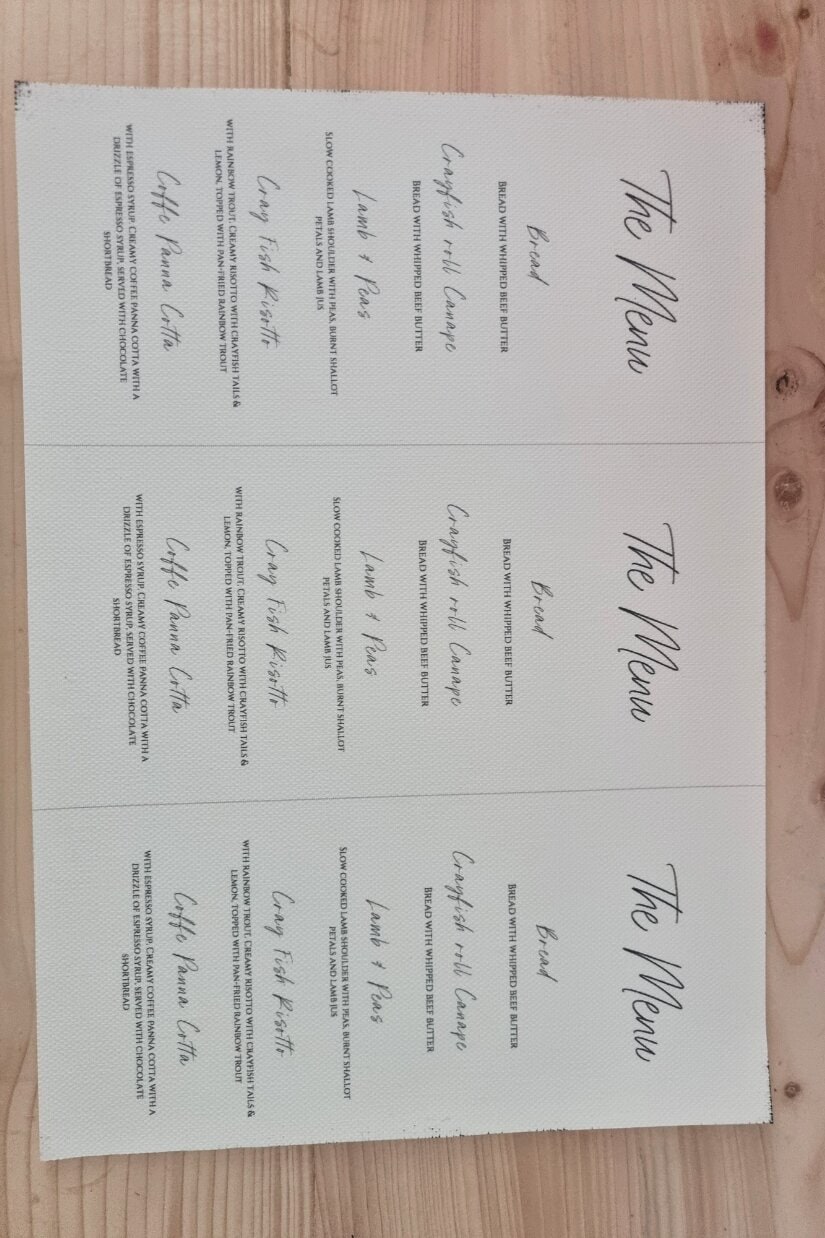 The Menu
Bread
BREAD WITH WHIPPED BEEF BUTTER
Crayfish roll Canape
BREAD WITH WHIPPED BEEF BUTTER
Lamb & Peas
SLOW COOKED LAMB SHOULDER WITH PEAS, BURNT SHALLOT
PETALS AND LAMB JUS
Cray Fish Risotto
WITH RAINBOW TROUT, CREAMY RISOTTO WITH CRAYFISH TAILS &
LEMON, TOPPED WITH PAN-FRIED RAINBOW TROUT
Coffe Panna Cotta
WITH ESPRESSO SYRUP, CREAMY COFFEE PANNA COTTA WITH A
DRIZZLE OF ESPRESSO SYRUP, SERVED WITH CHOCOLATE
SHORTBREAD
The Menu
Bread
BREAD WITH WHIPPED BEEF BUTTER
Crayfish roll Canape
BREAD WITH WHIPPED BEEF BUTTER
Lamb & Peas
SLOW COOKED LAMB SHOULDER WITH PEAS, BURNT SHALLOT
PETALS AND LAMB JUS
Cray Fish Risotto
WITH RAINBOW TROUT, CREAMY RISOTTO WITH CRAYFISH TAILS &
LEMON, TOPPED WITH PAN-FRIED RAINBOW TROUT
Coffe Panna Cotta
WITH ESPRESSO SYRUP, CREAMY COFFEE PANNA COTTA WITH A
DRIZZLE OF ESPRESSO SYRUP, SERVED WITH CHOCOLATE
SHORTBREAD
The Menu
Bread
BREAD WITH WHIPPED BEEF BUTTER
Crayfish roll Canape
BREAD WITH WHIPPED BEEF BUTTER
Lamb & Peas
SLOW COOKED LAMB SHOULDER WITH PEAS, BURNT SHALLOT
PETALS AND LAMB JUS
Cray Fish Risotto
WITH RAINBOW TROUT, CREAMY RISOTTO WITH CRAYFISH TAILS &
LEMON, TOPPED WITH PAN-FRIED RAINBOW TROUT
Coffe Panna Cotta
WITH ESPRESSO SYRUP, CREAMY COFFEE PANNA COTTA WITH A
DRIZZLE OF ESPRESSO SYRUP, SERVED WITH CHOCOLATE
SHORTBREAD